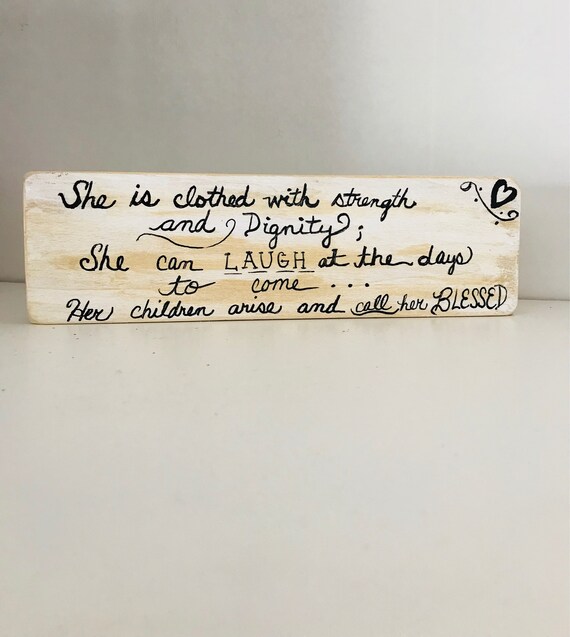 She is clothed with strength
and Dignity;
She can LAUGH at the days
to come ...
Her children arise and call her BLESSED